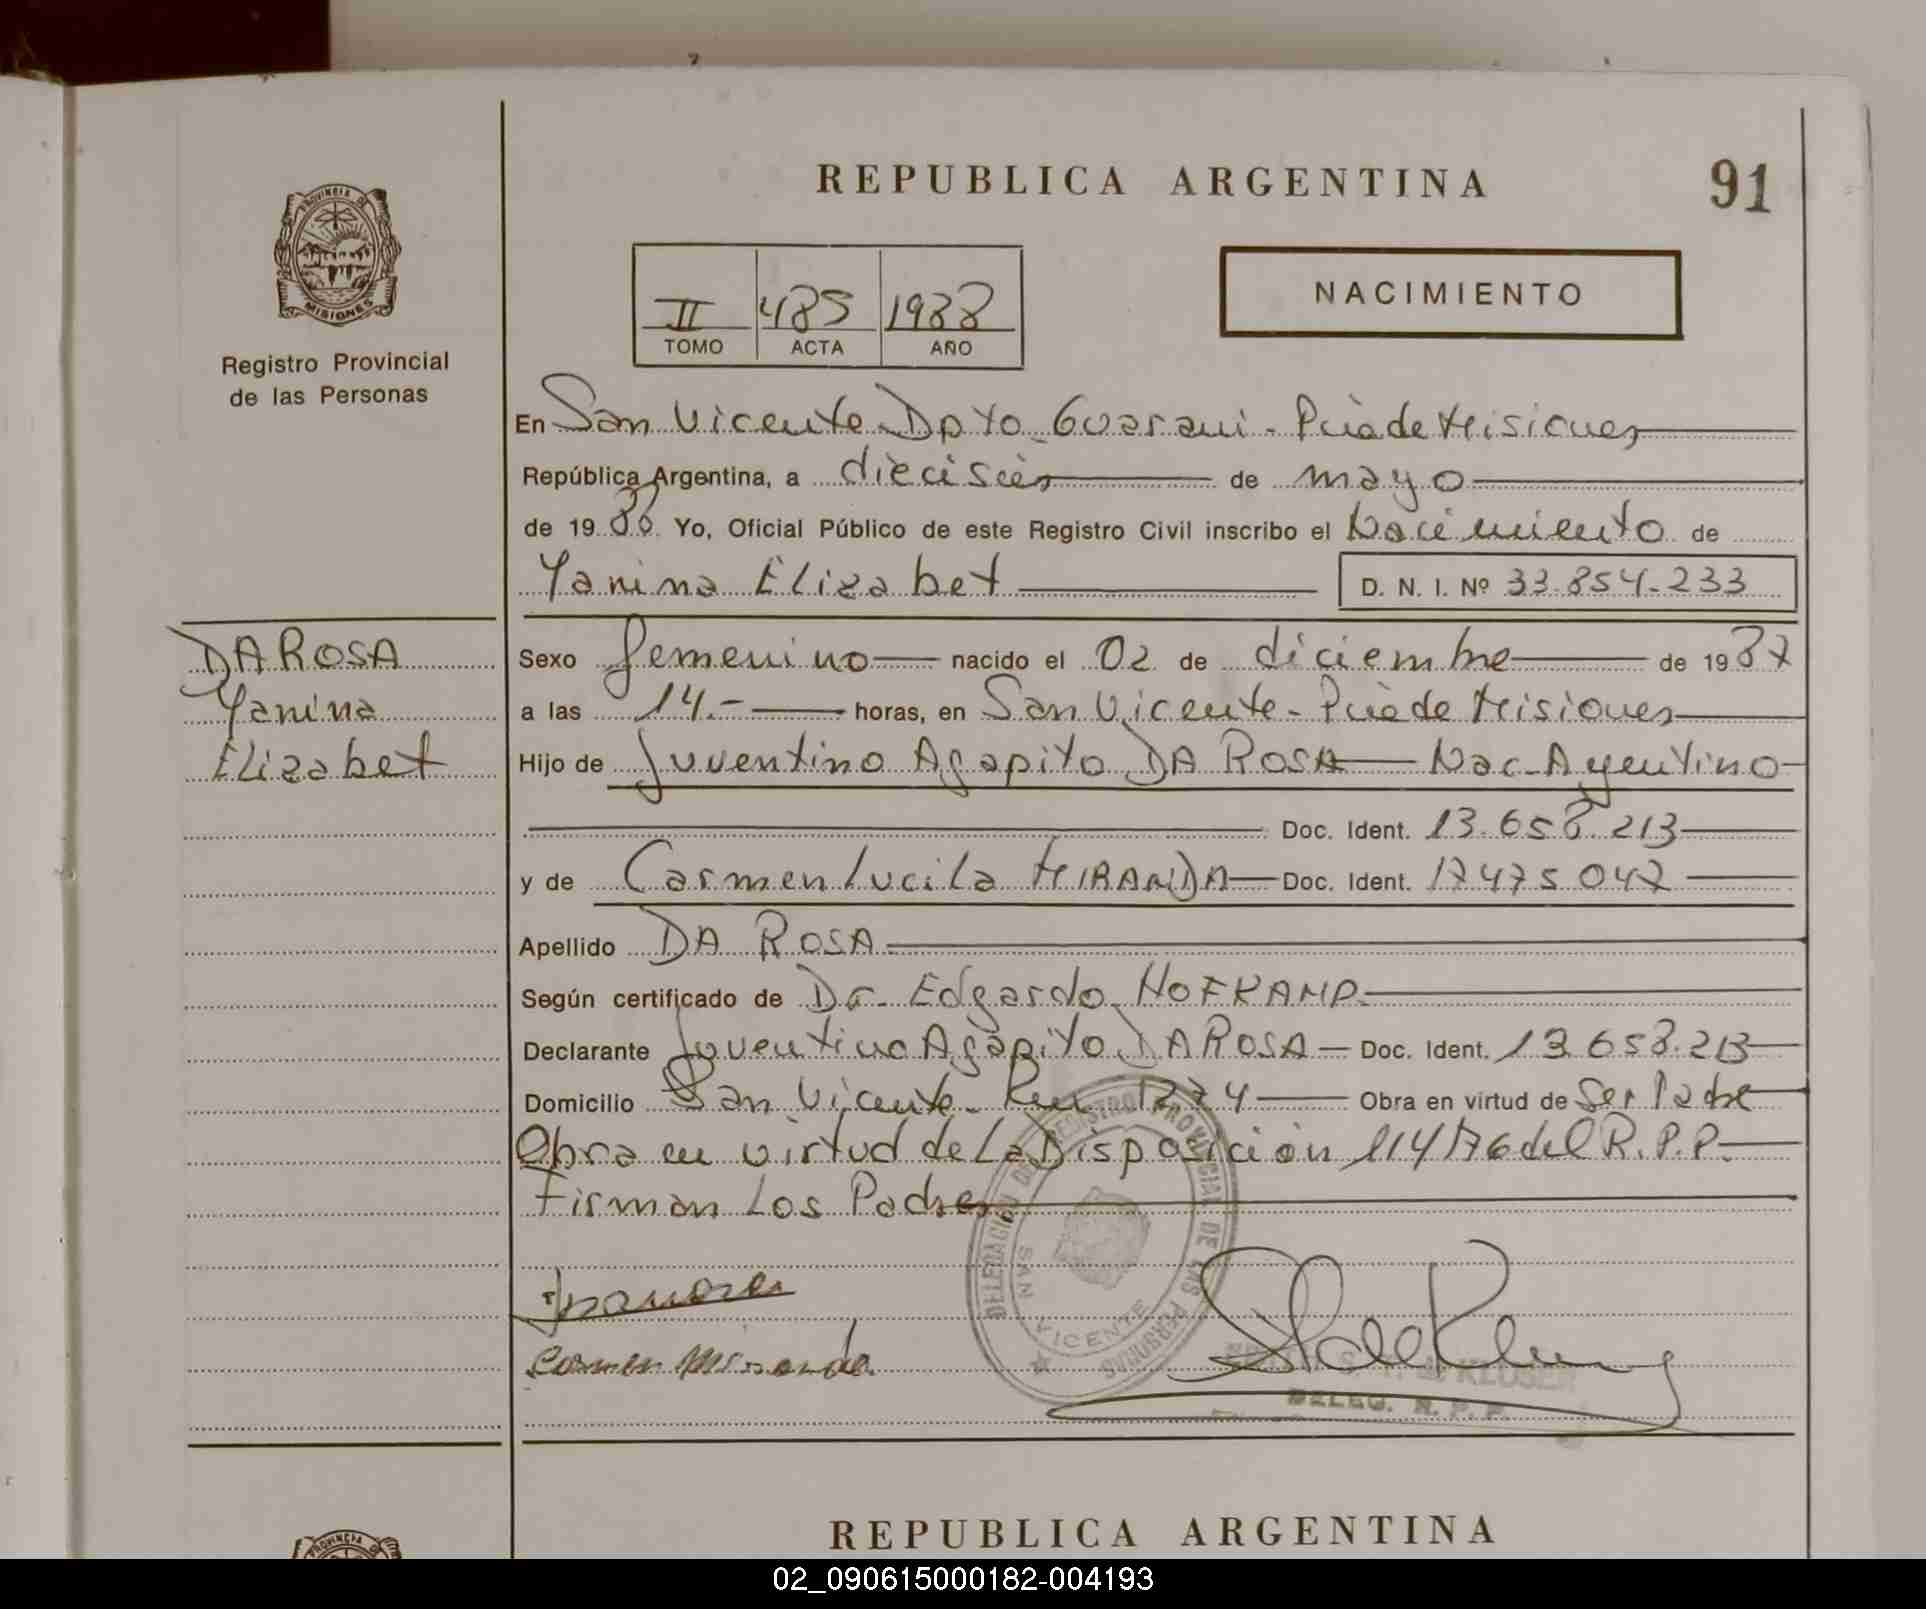 REPUBLICA ARGENTINA
91
PROVINCIA DE
MISIONES
Registro Provincial
de las Personas
II 485 1988
TOMO ACTA AÑO
NACIMIENTO
En San Vicente Dpto. Guarani - Pcia de Misiones
República Argentina, a dieciseis de mayo
de 19 88 Yo, Oficial Público de este Registro Civil inscribo el Nacimiento de
Yanina Elizabet D. N. I. Nº 33.854.233
DA ROSA
Yanina
Elizabet
Sexo femenino nacido el 02 de diciembre de 19 87
a las 14.- horas, en San Vicente - Pcia de Misiones
Hijo de Juventino Agapito DA ROSA Nac. Argentino
Doc. Ident. 13.658.213
y de Carmen Lucila MIRANDA Doc. Ident. 17475047
Apellido DA ROSA
Según certificado de Dr. Edgardo HOFKAMP.
Declarante Juventino Agapito DA ROSA Doc. Ident. 13.658.213
Domicilio San Vicente - Km 1274 Obra en virtud de Ser Padre
Obra en virtud de La Disposición 114/76 del R.P.P.
Firman Los Padres
DELEGACION DEL REGISTRO PROVINCIAL DE LAS PERSONAS
SAN VICENTE
Carmen Miranda
S. T. de KLUSER
DELEG. R. P. P.
REPUBLICA ARGENTINA
PROVINCIA DE
02_090615000182-004193